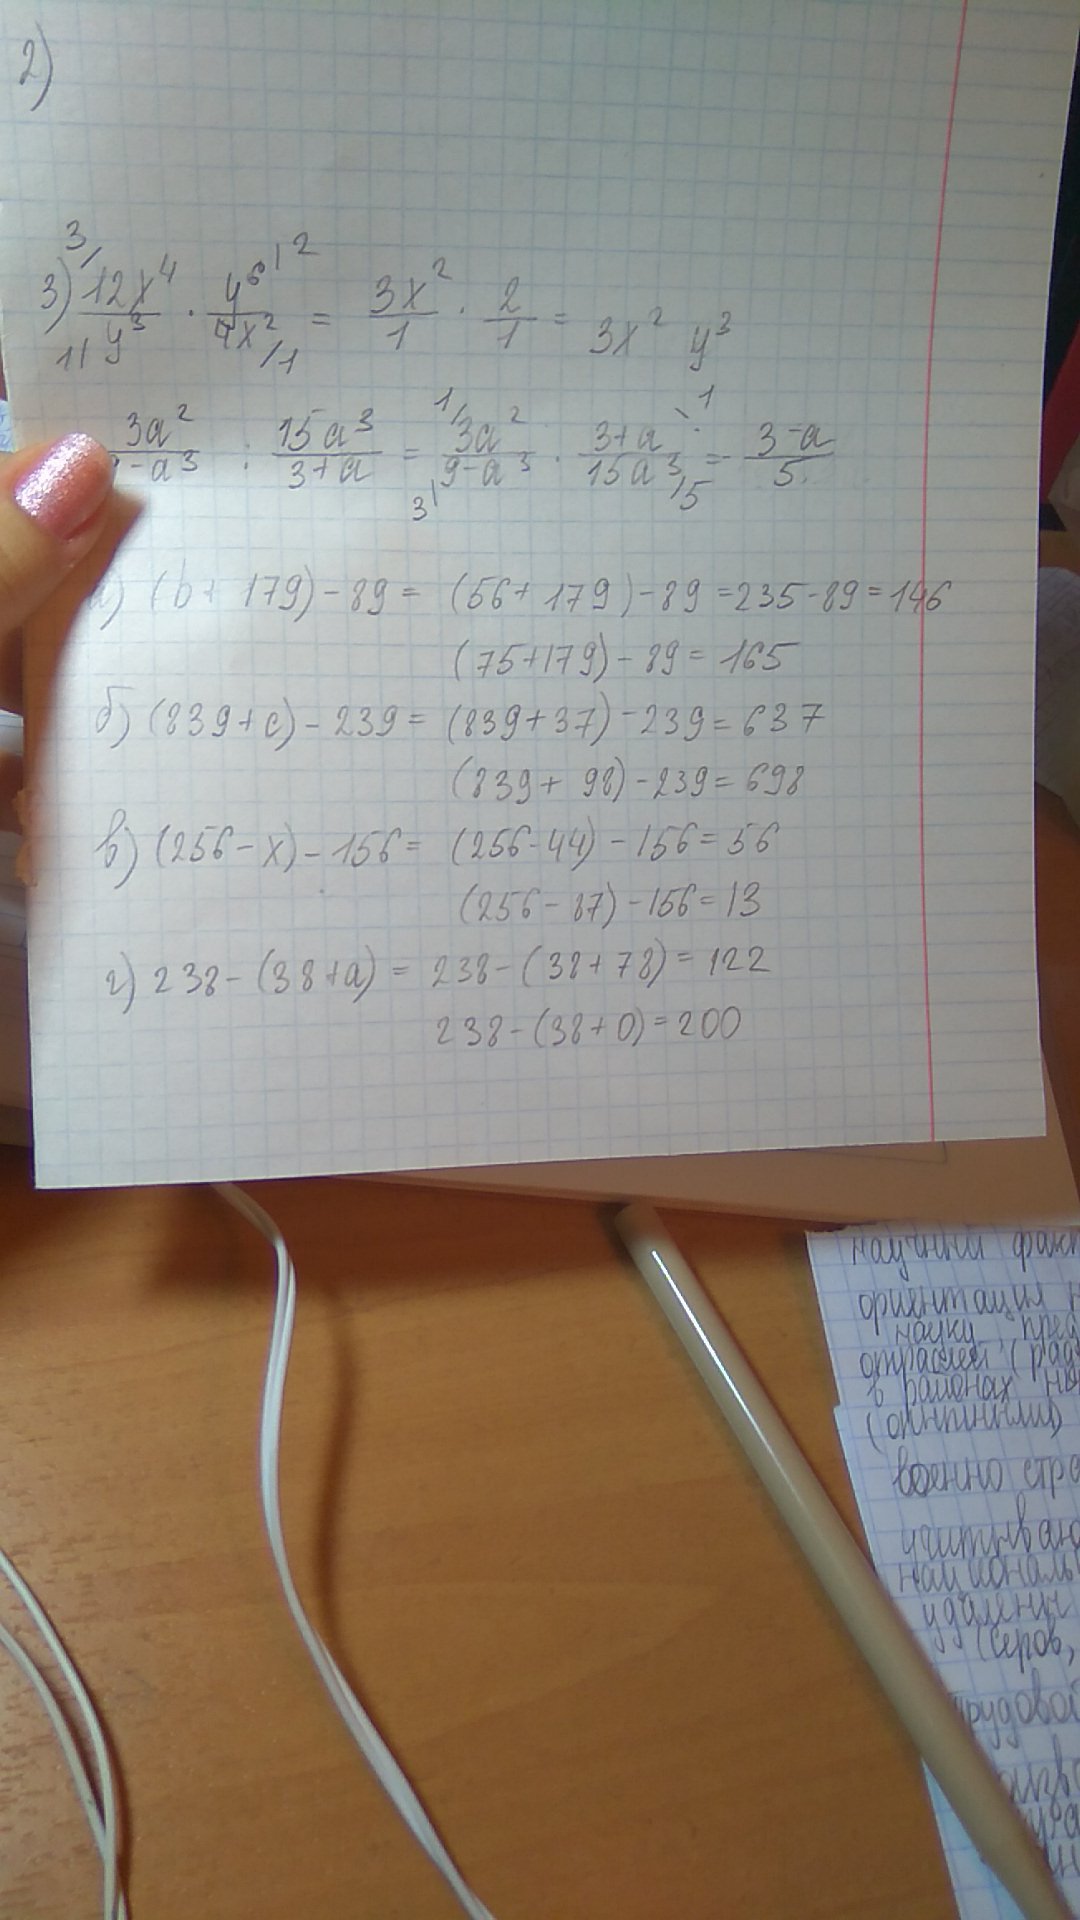 2)
3) 3/ 12x⁴ / 1| y³ · y⁶ |2 / 4x² /1 = 3x² / 1 · 2 / 1 = 3x² y³
3a² / -a³ : 15a³ / 3+a = 1/ 3a² / 3| 9-a³ · 3+a \1 / 15a³ /5 = 3-a / 5
) (b+ 179) - 89 = (56+ 179) - 89 = 235 - 89 = 146
(75+179) - 89 = 165
б) (839+c) - 239 = (839+37) - 239 = 637
(839+ 98) - 239 = 698
в) (256 - x) - 156 = (256-44) - 156 = 56
(256 - 87) - 156 = 13
г) 238 - (38+a) = 238 - (38+78) = 122
238 - (38+0) = 200
научный
ориентация
науку
отраслей
в районах
военно
удалены
(Серов,